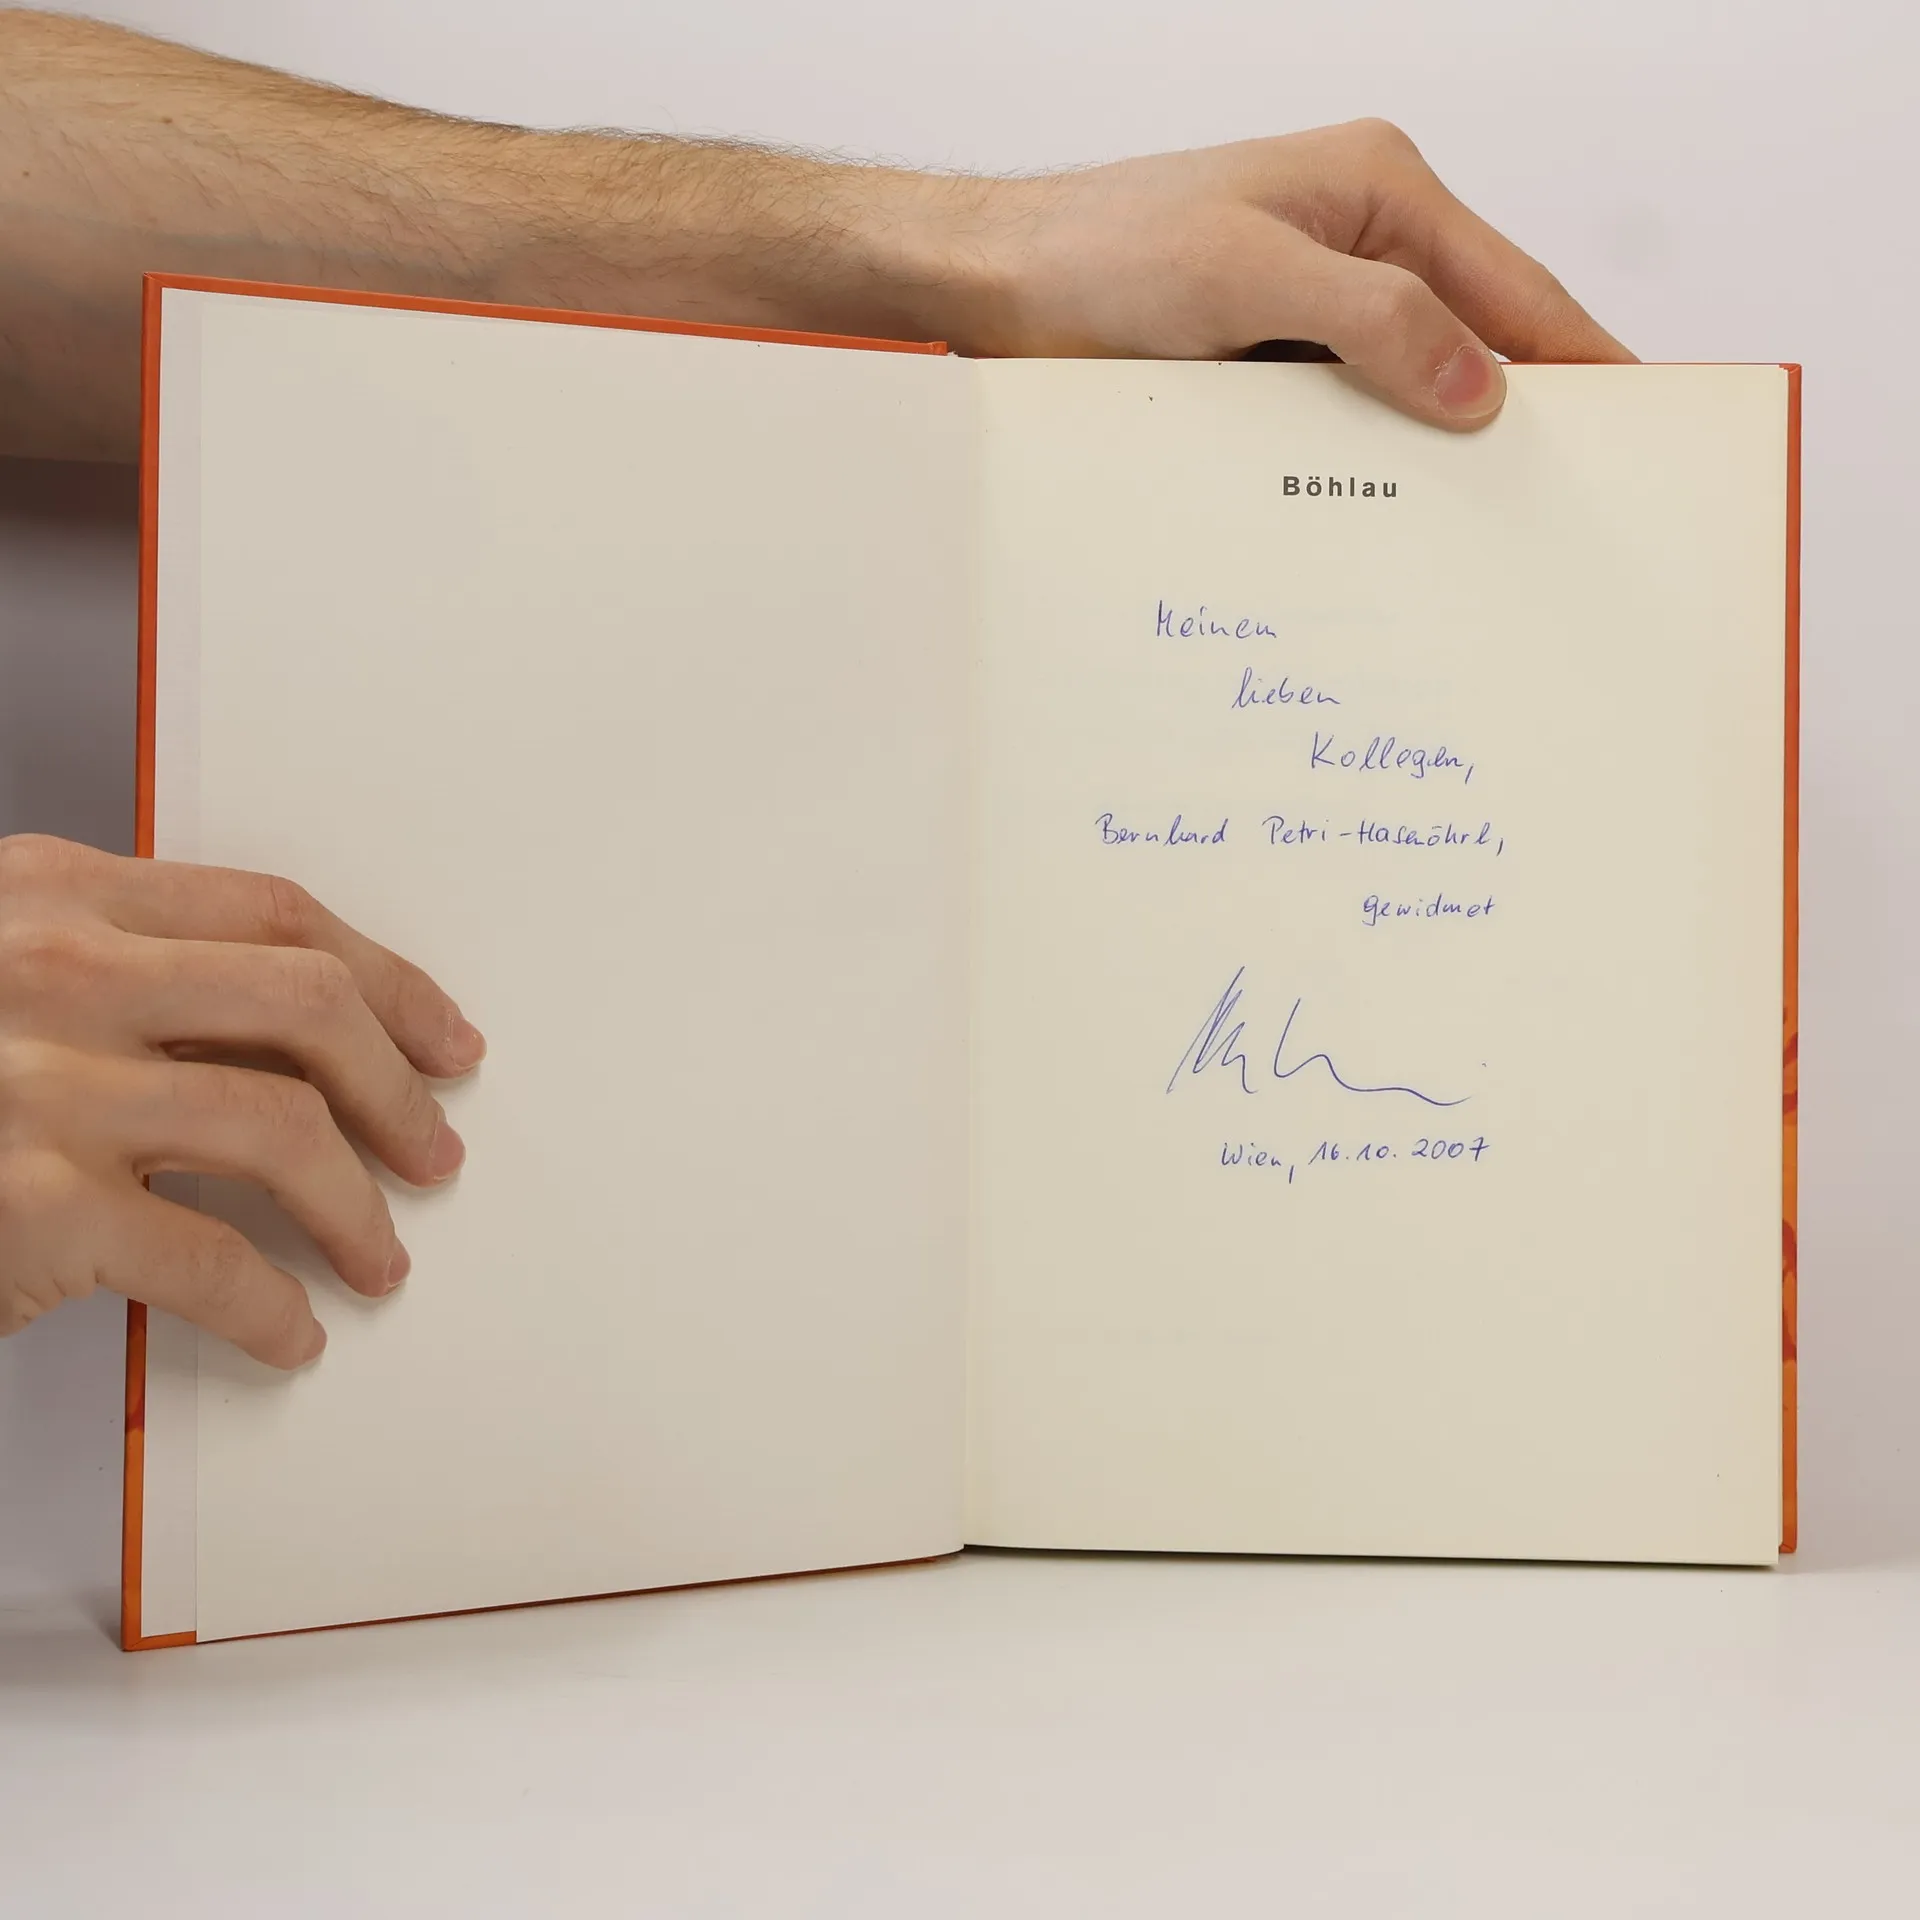 Böhlau
Meinem
lieben
Kollegen,
Bernhard Petri-Hasenöhrl,
gewidmet
Wien, 16.10.2007